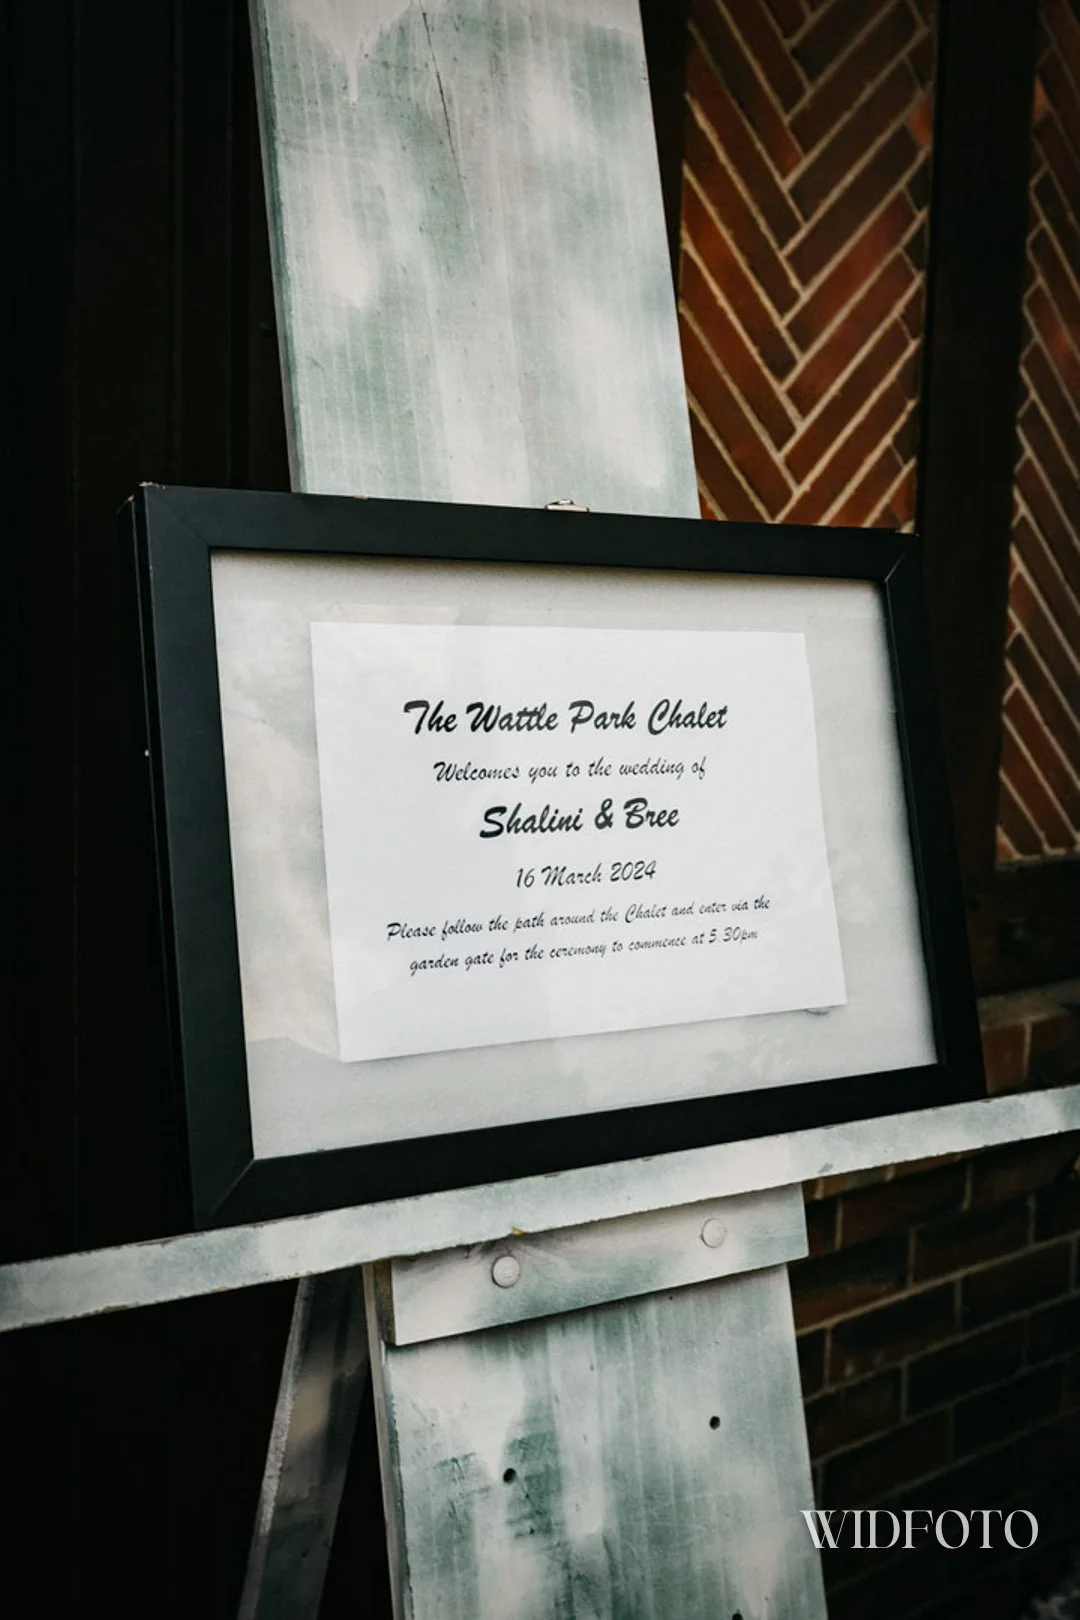 The Wattle Park Chalet
Welcomes you to the wedding of
Shalini & Bree
16 March 2024
Please follow the path around the Chalet and enter via the
garden gate for the ceremony to commence at 5.30pm
WIDFOTO